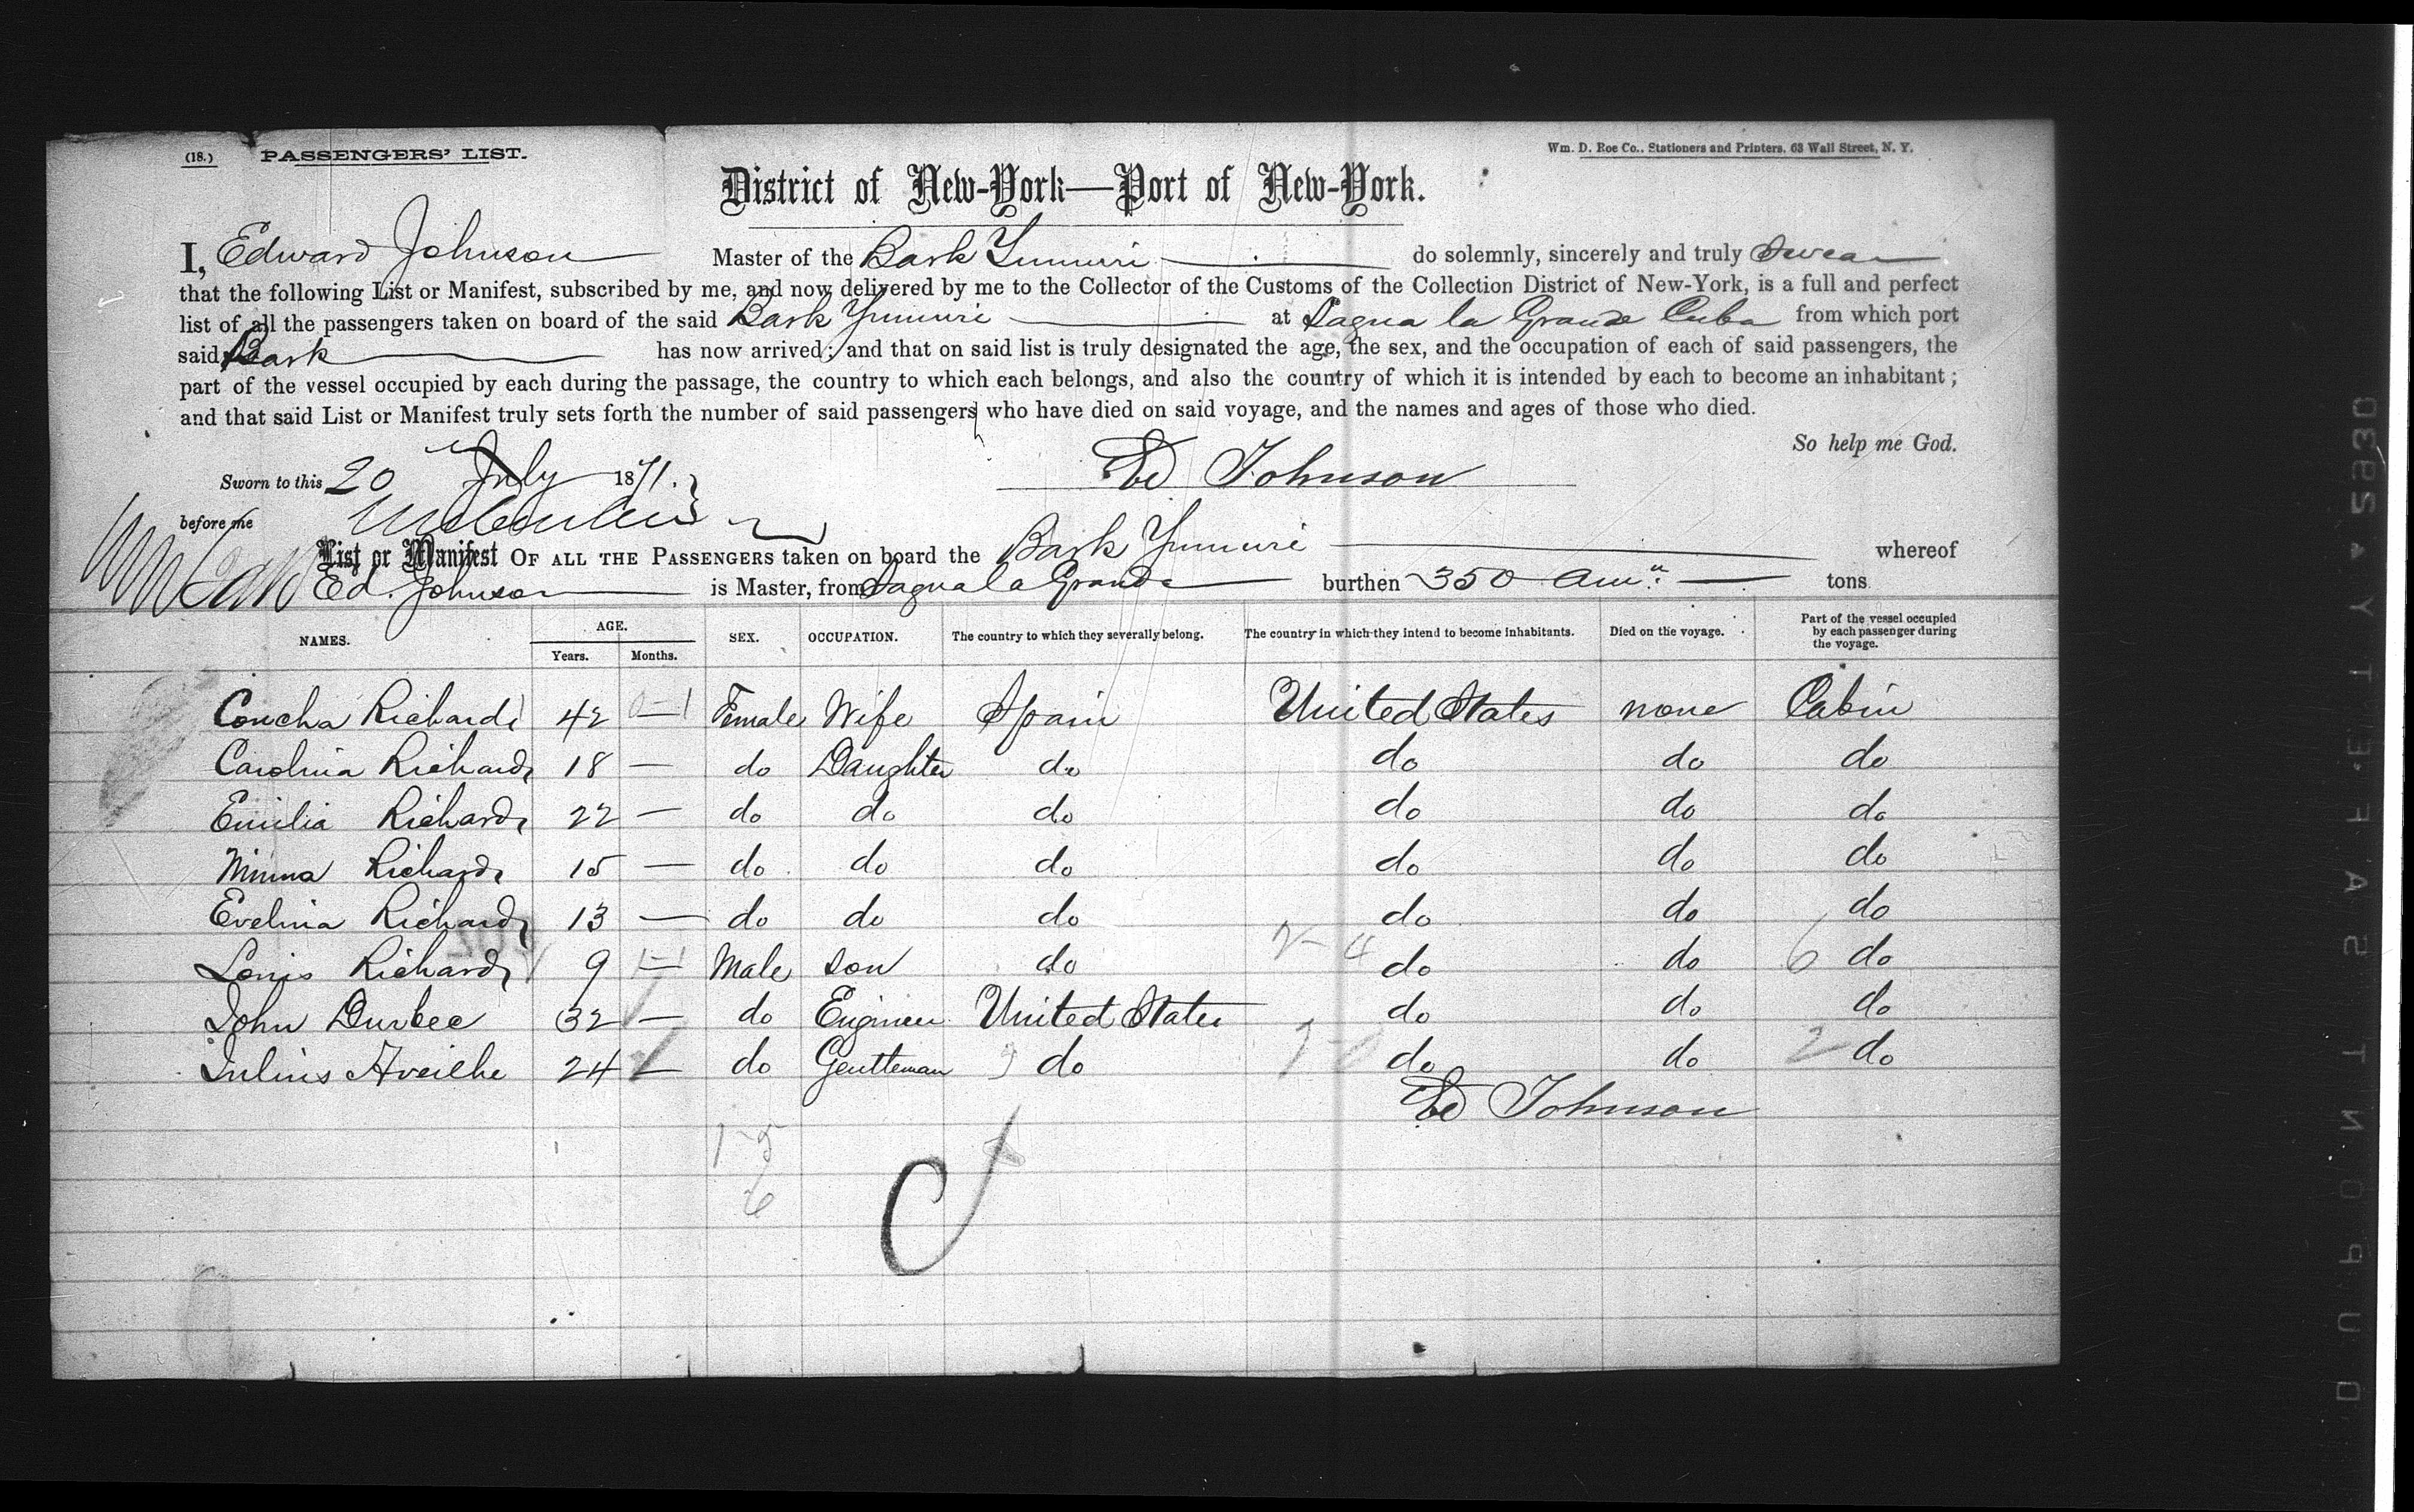 (18.) PASSENGERS' LIST.
Wm. D. Roe Co., Stationers and Printers, 63 Wall Street, N. Y.
District of New-York—Port of New-York.
I, Edward Johnson Master of the Bark Yumuri do solemnly, sincerely and truly Swear
that the following List or Manifest, subscribed by me, and now delivered by me to the Collector of the Customs of the Collection District of New-York, is a full and perfect
list of all the passengers taken on board of the said Bark Yumuri at Sagua la Grande Cuba from which port
said Bark has now arrived; and that on said list is truly designated the age, the sex, and the occupation of each of said passengers, the
part of the vessel occupied by each during the passage, the country to which each belongs, and also the country of which it is intended by each to become an inhabitant;
and that said List or Manifest truly sets forth the number of said passengers who have died on said voyage, and the names and ages of those who died.
So help me God.
Sworn to this 20 July 1871. Ed Johnson
before me
List or Manifest OF ALL THE PASSENGERS taken on board the Bark Yumuri whereof
Ed. Johnson is Master, from Sagua la Grande burthen 350 Am. tons
NAMES. AGE. SEX. OCCUPATION. The country to which they severally belong. The country in which they intend to become inhabitants. Died on the voyage. Part of the vessel occupied by each passenger during the voyage.
Years. Months.
Concha Richards 42 — Female Wife Spain United States none Cabin
Carolina Richards 18 — do Daughter do do do do
Emilia Richards 22 — do do do do do do
Minna Richards 15 — do do do do do do
Evelina Richards 13 — do do do do do do
Louis Richards 9 — Male son do do do do
John Durbee 32 — do Engineer United States do do do
Julius Aveilhe 24 — do Gentleman do do do do
Ed Johnson
1-5
6
DUPONT SAFETY